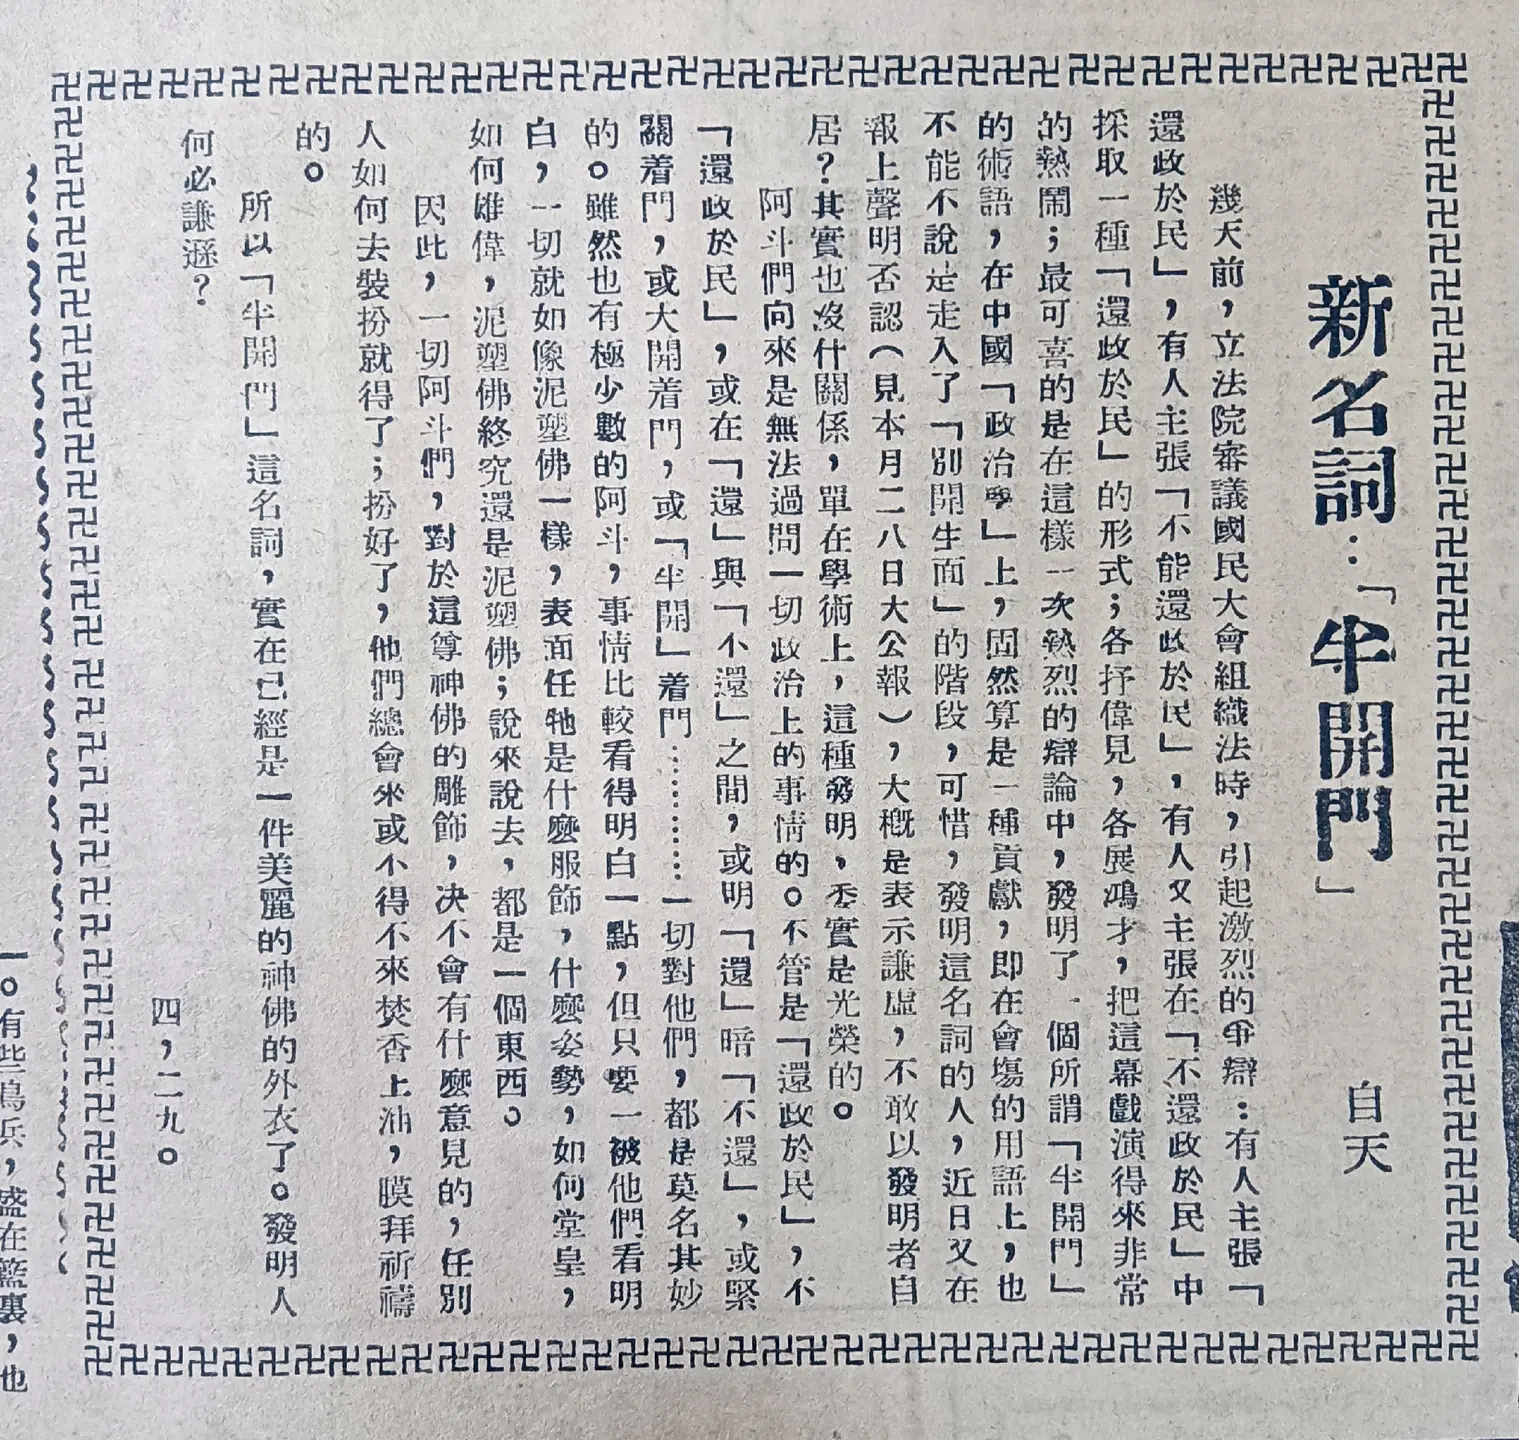 新名詞：「半開門」
自天
幾天前，立法院審議國民大會組織法時，引起激烈的爭辯：有人主張「
還政於民」，有人主張「不能還政於民」，有人又主張在「不還政於民」中
採取一種「還政於民」的形式；各抒偉見，各展鴻才，把這幕戲演得來非常
的熱鬧；最可喜的是在這樣一次熱烈的辯論中，發明了一個所謂「半開門」
的術語，在中國「政治學」上，固然算是一種貢獻，即在會塲的用語上，也
不能不說是走入了「別開生面」的階段，可惜，發明這名詞的人，近日又在
報上聲明否認（見本月二八日大公報），大槪是表示謙虛，不敢以發明者自
居？其實也沒什關係，單在學術上，這種發明，委實是光榮的。
阿斗們向來是無法過問一切政治上的事情的。不管是「還政於民」，不
「還政於民」，或在「還」與「不還」之間，或明「還」暗「不還」，或緊
關着門，或大開着門，或「半開」着門………一切對他們，都是莫名其妙
的。雖然也有極少數的阿斗，事情比較看得明白一點，但只要一被他們看明
白，一切就如像泥塑佛一樣，表面任牠是什麽服飾，什麽姿勢，如何堂皇，
如何雄偉，泥塑佛終究還是泥塑佛；說來說去，都是一個東西。
因此，一切阿斗們，對於這尊神佛的雕飾，决不會有什麽意見的，任別
人如何去裝扮就得了；扮好了，他們總會來或不得不來焚香上油，膜拜祈禱
的。
所以「半開門」這名詞，實在已經是一件美麗的神佛的外衣了。發明人
何必謙遜？
四，二九。
一。有些烏兵，盛在籃裏，也